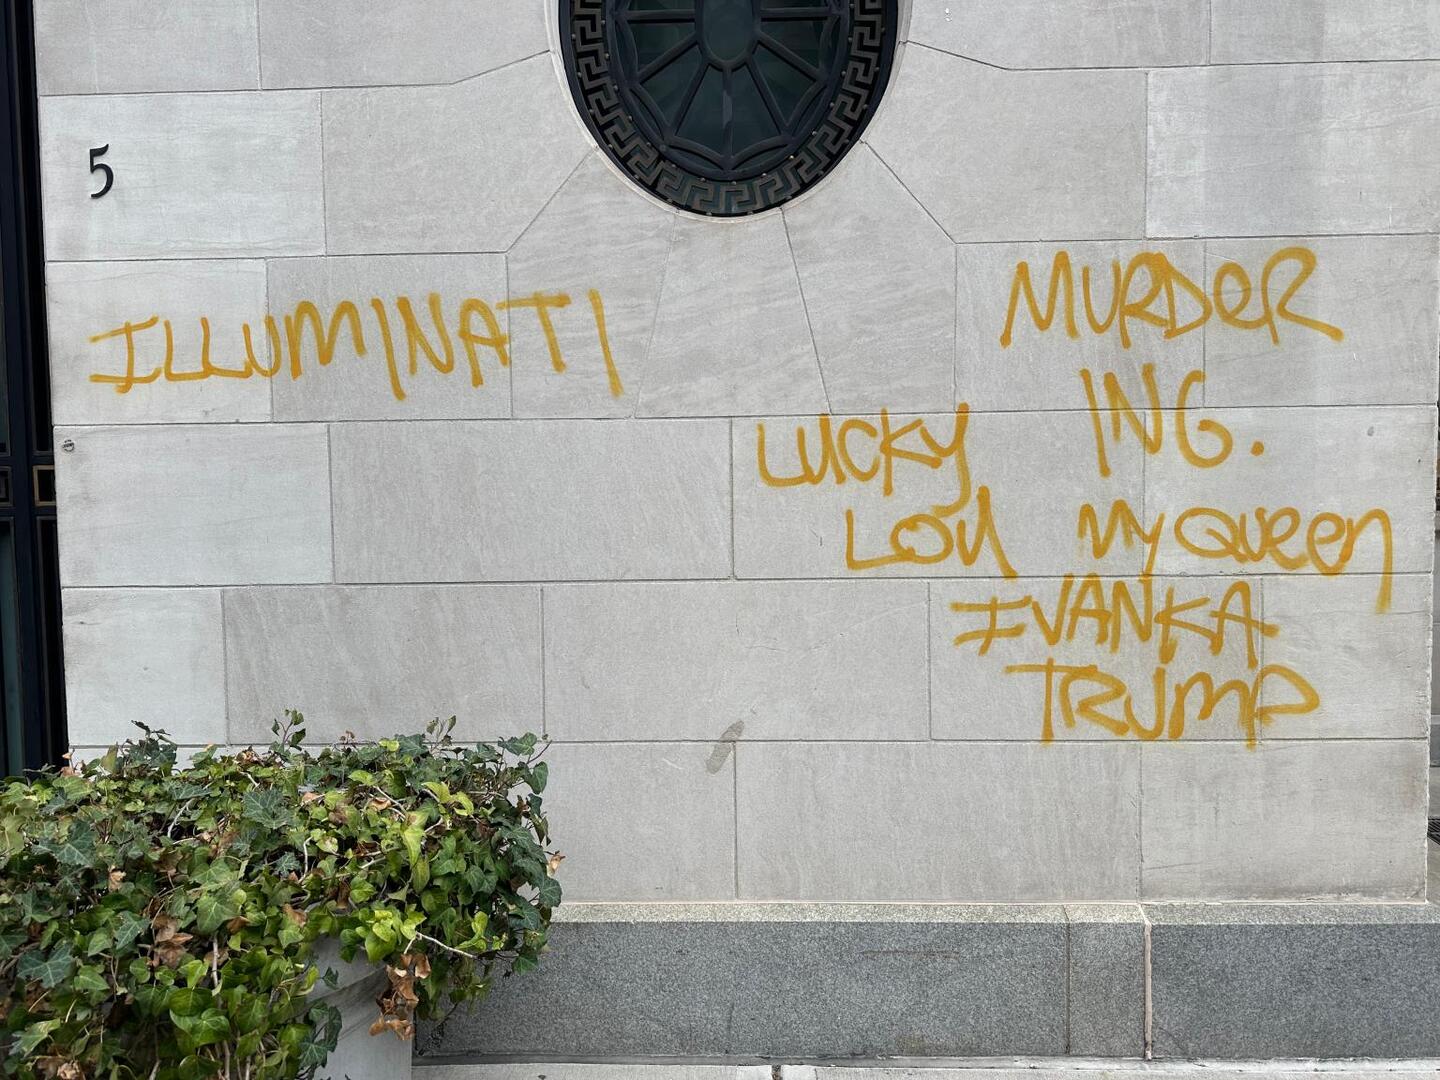 5
ILLUMINATI
MURDER
ING.
LUCKY
LOU
MY QUEEN
IVANKA
TRUMP